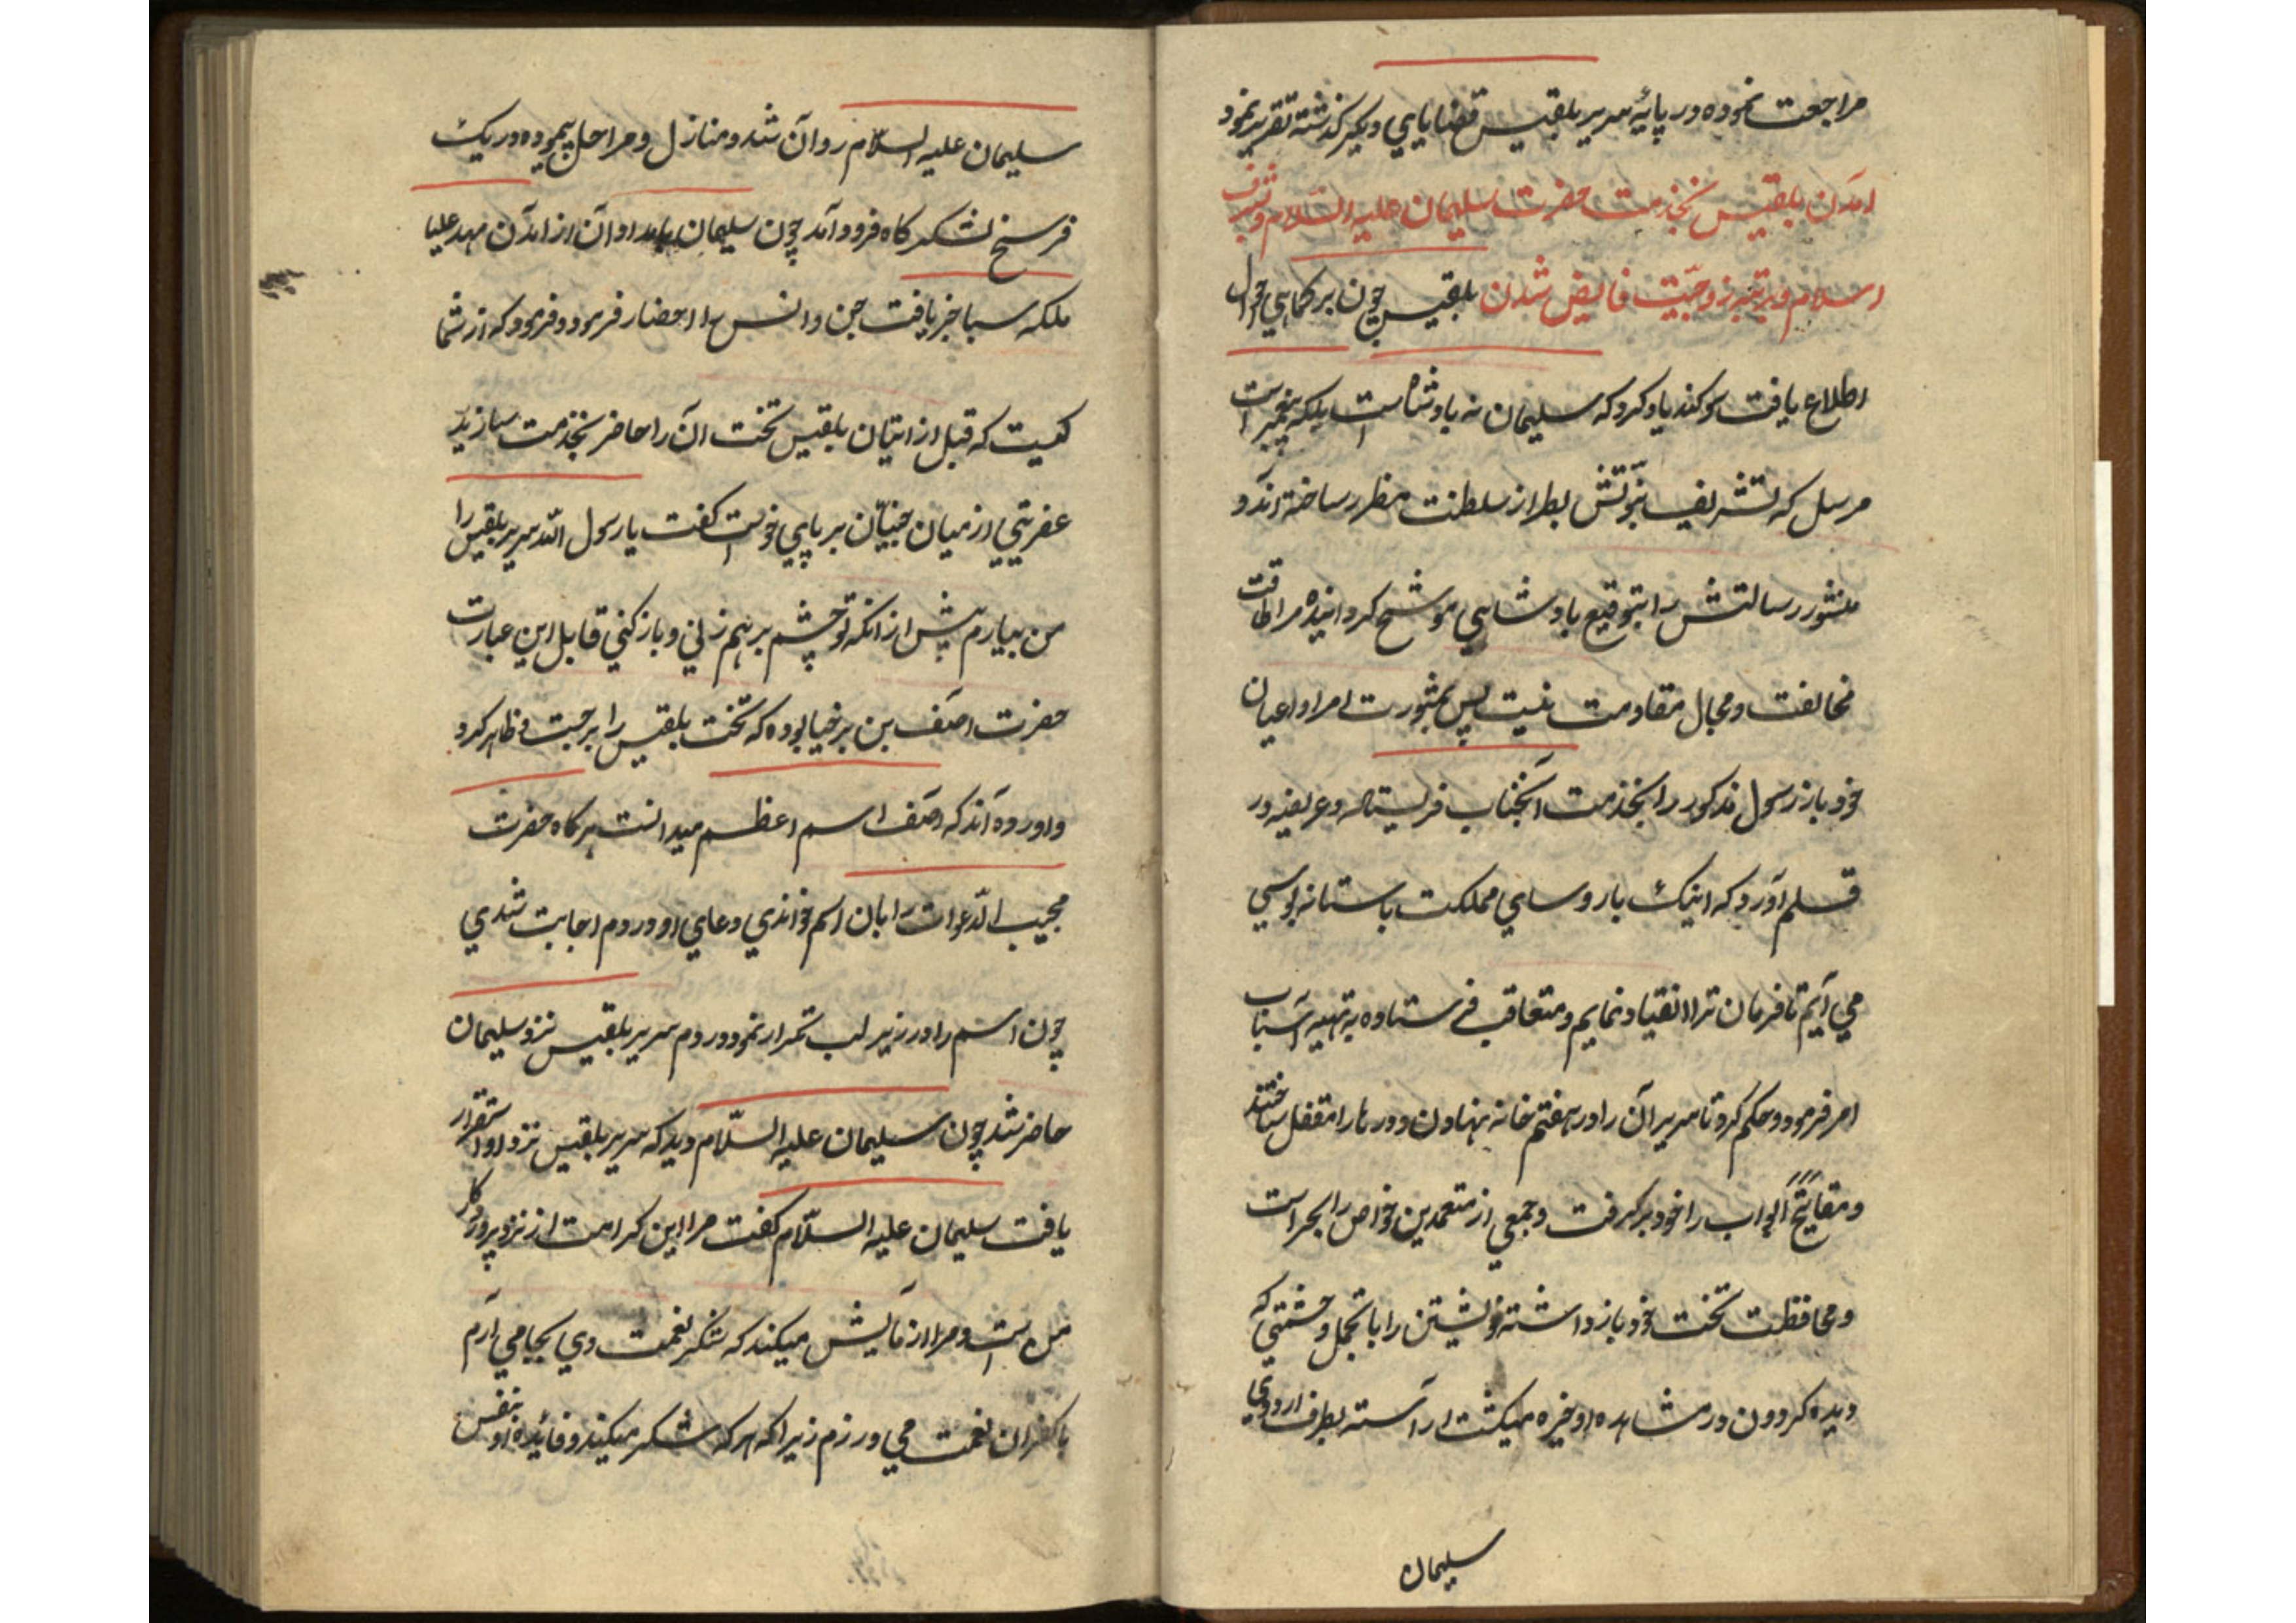 مراجعت نموده در پایهٔ سریر بلقیس قضایایی دیگر گذشته تقریر نمود
امدن بلقیس بخدمت حضرت سلیمان علیه السلام و شرف
اسلام و برتبه زوجیّت فایض شدن بلقیس چون بر کماهی احوال
اطلاع یافت سوکند یاد کرد که سلیمان نه بادشاه است بلکه پیغمبریست
مرسل که تشریف نبوّتش بطراز سلطنت مطرز ساخته اند و
منشور رسالتش را بتوقیع بادشاهی موشح کردانیده مرا طاقت
مخالفت و مجال مقاومت نیست پس بمشورت امرا و اعیان
خود باز رسول مذکور را بخدمت آنجناب فرستاد و عریضه در
قلم آورد که اینک با روسای مملکت باستانه بوسی
می آیم تا فرمان ترا انقیاد نمایم و متعاقب فرستاده به تهیه اسباب
امر فرمود و حکم کرد تا سریر آن را در هفتم خانه نهادن و درها را مقفل ساختند
و مفاتیح ابواب را خود برگرفت و جمعی از معتمدین خواص را بحراست
و محافظت تخت خود باز داشته خویشتن را با تجمل و حشمتی که
دیده کردون در مشاهده او خیره میکشت آراسته بطرف اردوی
سلیمان
سلیمان علیه السلام روان شد و منازل و مراحل پیموده در یک
فرسخ لشکرکاه فرود آمد چون سلیمان بامداد آن از امدن مهد علیا
ملکه سبا خبر یافت جن و انس را احضار فرمود و فرمود که از شما
کیست که قبل از اتیان بلقیس تخت آن را حاضر بخدمت سازید
عفریتی از میان جنیّان بر پای خواست کفت یا رسول الله سریر بلقیس را
من بیارم پیش از انکه تو چشم برهم زنی و باز کنی قابل این عبارت
حضرت اصف بن برخیا بوده که تخت بلقیس را برجست و ظاهر کرد
و اورده اند که اصف اسم اعظم میدانست هرکاه حضرت
مجیب الدّعوات را بان اسم خواندی دعای او در دم اجابت شدی
چون اسم را در زیر لب تکرار نمود در دم سریر بلقیس نزد سلیمان
حاضر شد چون سلیمان علیه السّلام دید که سریر بلقیس نزد او استقرار
یافت سلیمان علیه السّلام کفت مرا این کرامت از نزد پروردکار
من است و مرا ازمایش میکند که شکر نعمت وی بجا می آرم
یا کفران نعمت می ورزم زیرا که هر که شکر میکند و فائده او بنفس